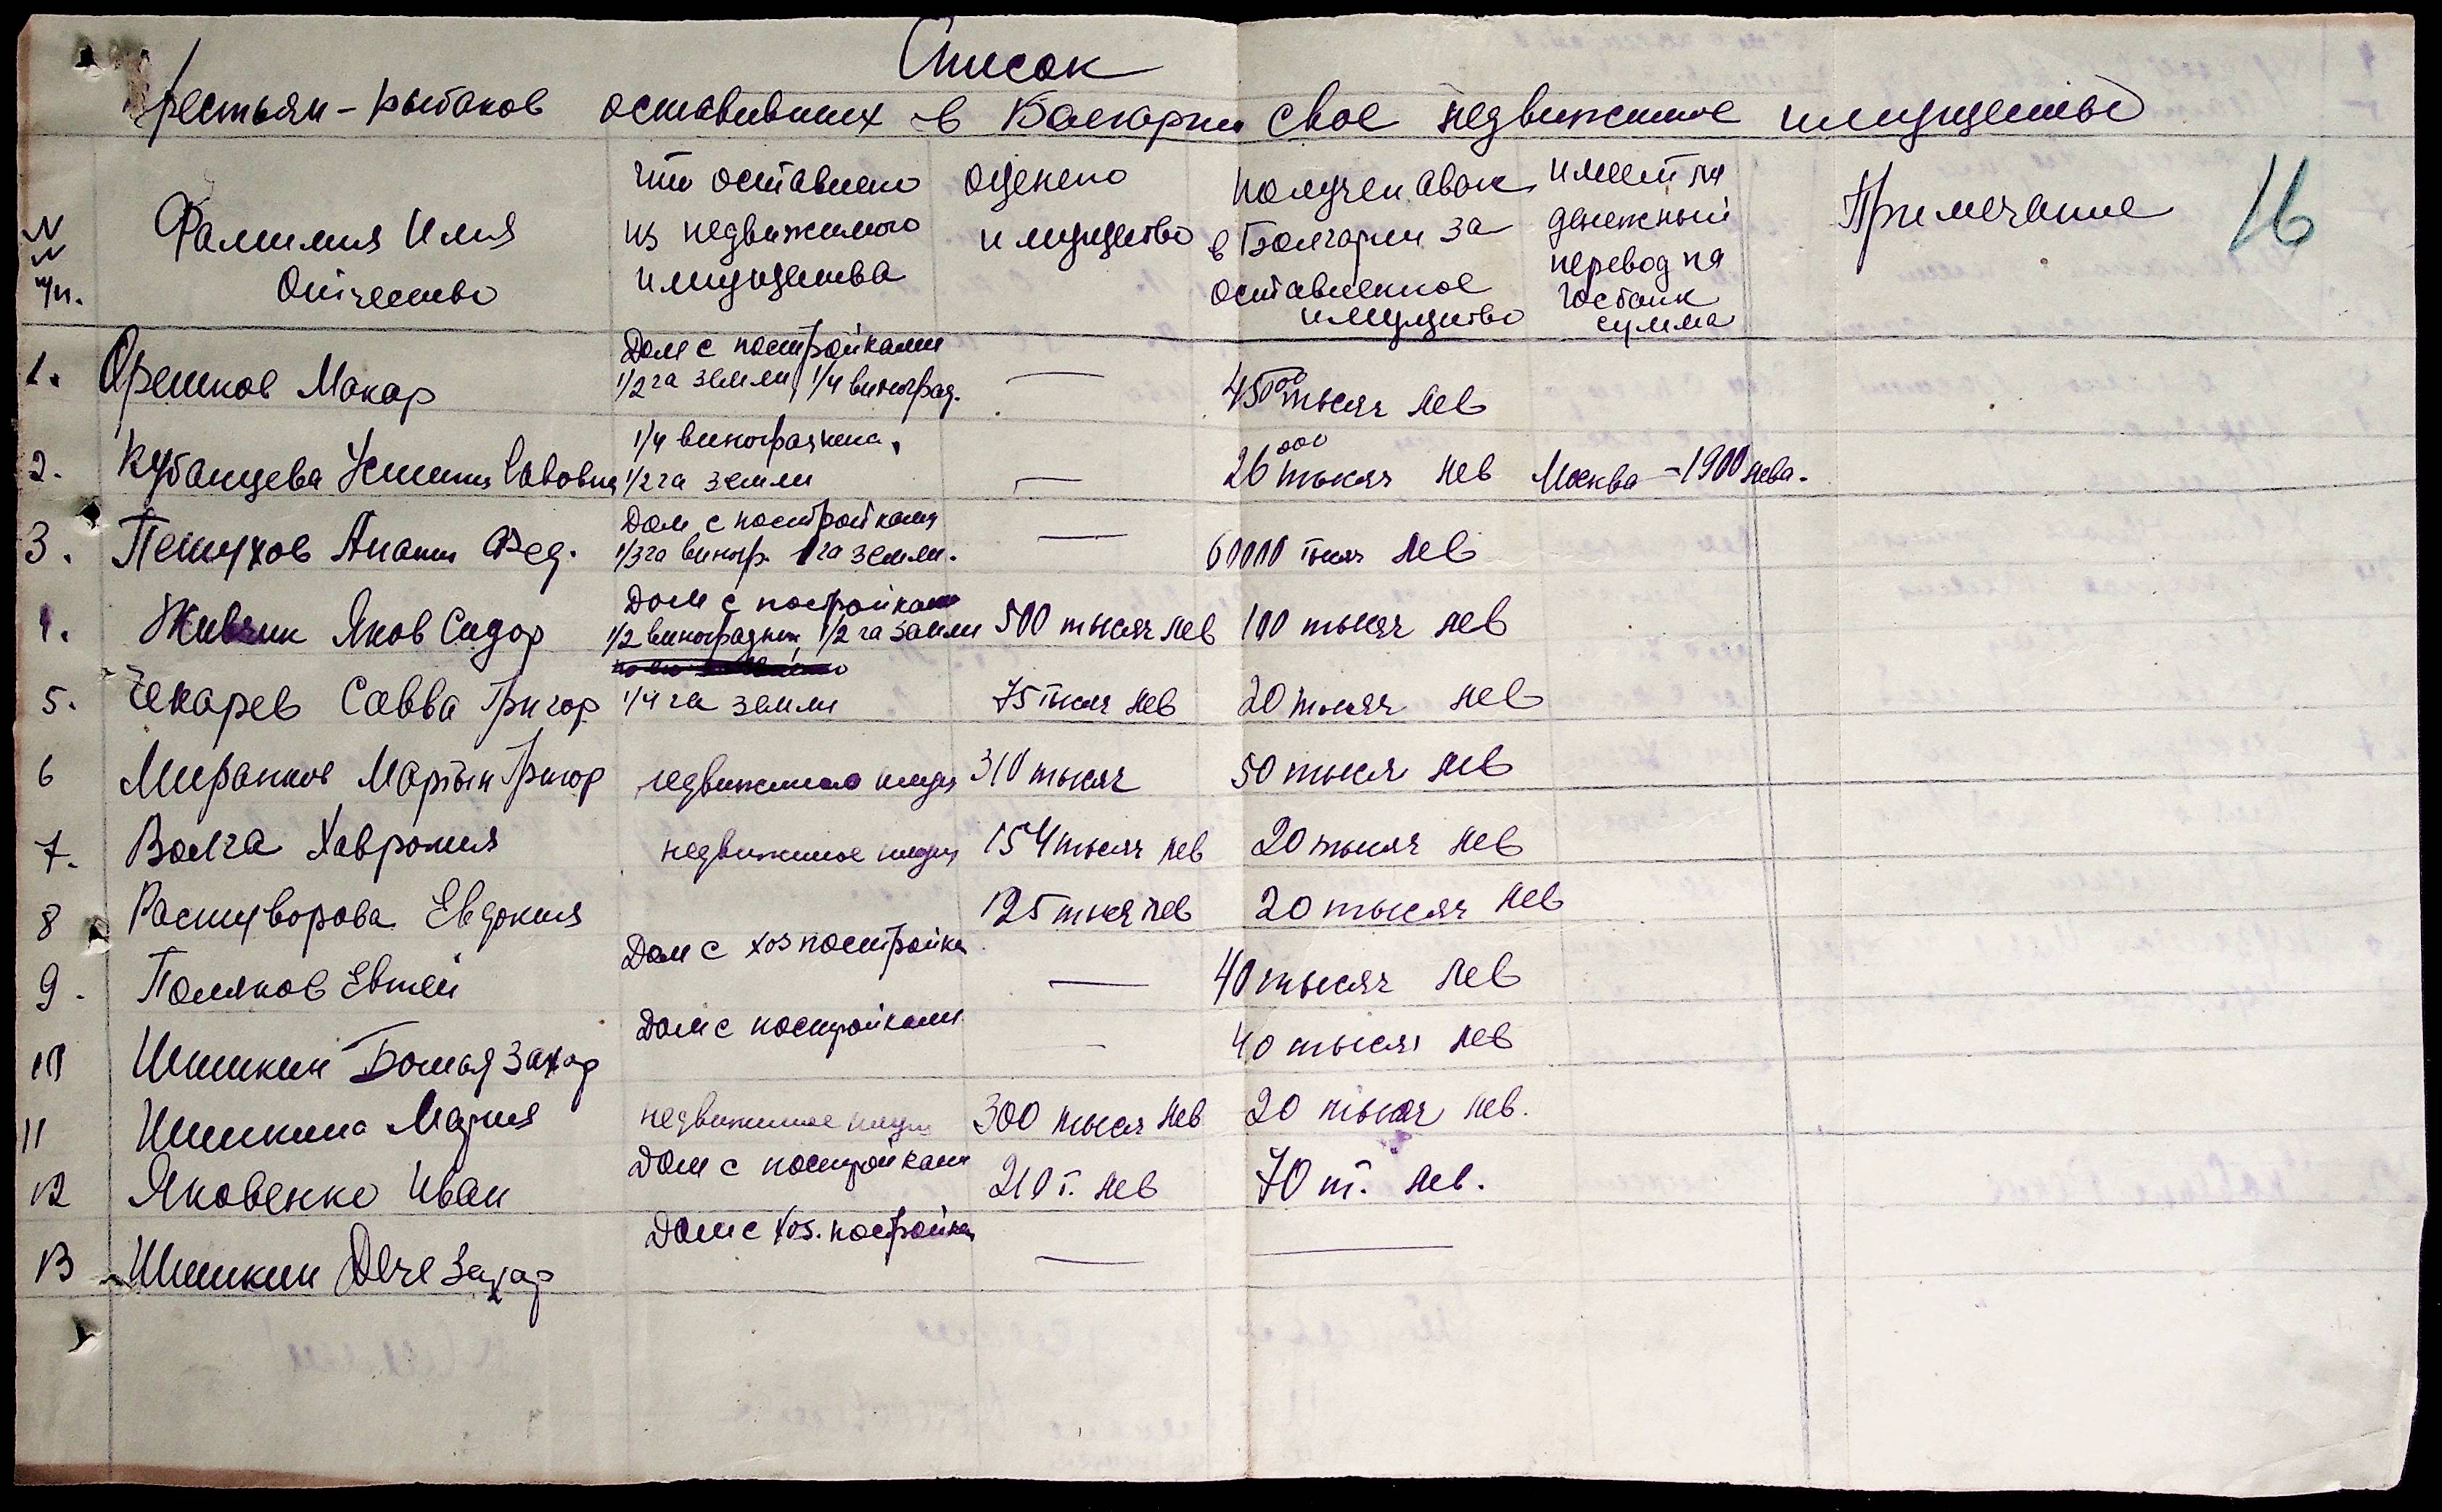 Список
Крестьян-рыбаков оставивших в Болгарии свое недвижимое имущество
16
N N п/п.
Фамилия Имя Отчество
что оставлено из недвижимого имущества
оценено имущество
получен аванс в Болгарии за оставленное имущество
имеет ли денежный перевод на Госбанк сумма
Примечание
1. Орешков Макар Дом с постройками 1/2 га земли, 1/4 виноград. — 45000 тысяч лев
2. Кубанцева Устинья Савовна 1/4 виноградника, 1/2 га земли — 26000 тысяч лев Москва - 1900 лева.
3. Петухов Анани Фед. Дом с постройками 1/3 га виногр. 1 га земли. — 60000 тысяч лев
4. Живчик Яков Сидор Дом с постройками 1/2 виноградник, 1/2 га земли 500 тысяч лев 100 тысяч лев
5. Чекарев Савва Григор 1/4 га земли 75 тысяч лев 20 тысяч лев
6 Миранков Мартын Григор недвижимое имущ 310 тысяч 50 тысяч лев
7. Волга Хаврония недвижимое имущ 154 тысяч лев 20 тысяч лев
8 Растуворова Евдокия 125 тысяч лев 20 тысяч лев
9. Поляков Евтей Дом с хоз постройка — 40 тысяч лев
10 Шишкин Захар Дом с постройками — 40 тысяч лев
11 Шишкина Мария недвижимое имущ 300 тысяч лев 20 тысяч лев.
12 Яковенко Иван Дом с постройками 210 т. лев 70 т. лев.
13 Шишкин Захар Дом с хоз. постройка — —